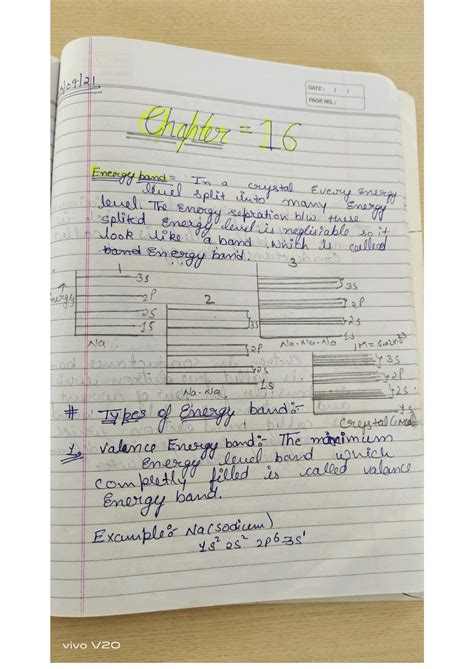 /04/21
DATE: / /
PAGE NO.:
Chapter = 16
Energy band = In a crystal Every energy
level split into many Energy
level. The energy sepration b/w these
splited Energy level is neglisiable so it
look like a band which is called
band Energy band.
1
3
3s
2P
2s
1s
Energy
Na
2
3s
2P
2s
1s
Na-Na
3s
2P
2s
1s
Na-Na-Na
3s
2P
2s
1s
# Types of Energy band:-
1. Valance Energy band:- The maximum
Energy level band which
completly filled is called valance
Energy band.
Example:- Na(sodium)
1s² 2s² 2p⁶ 3s¹
vivo V20